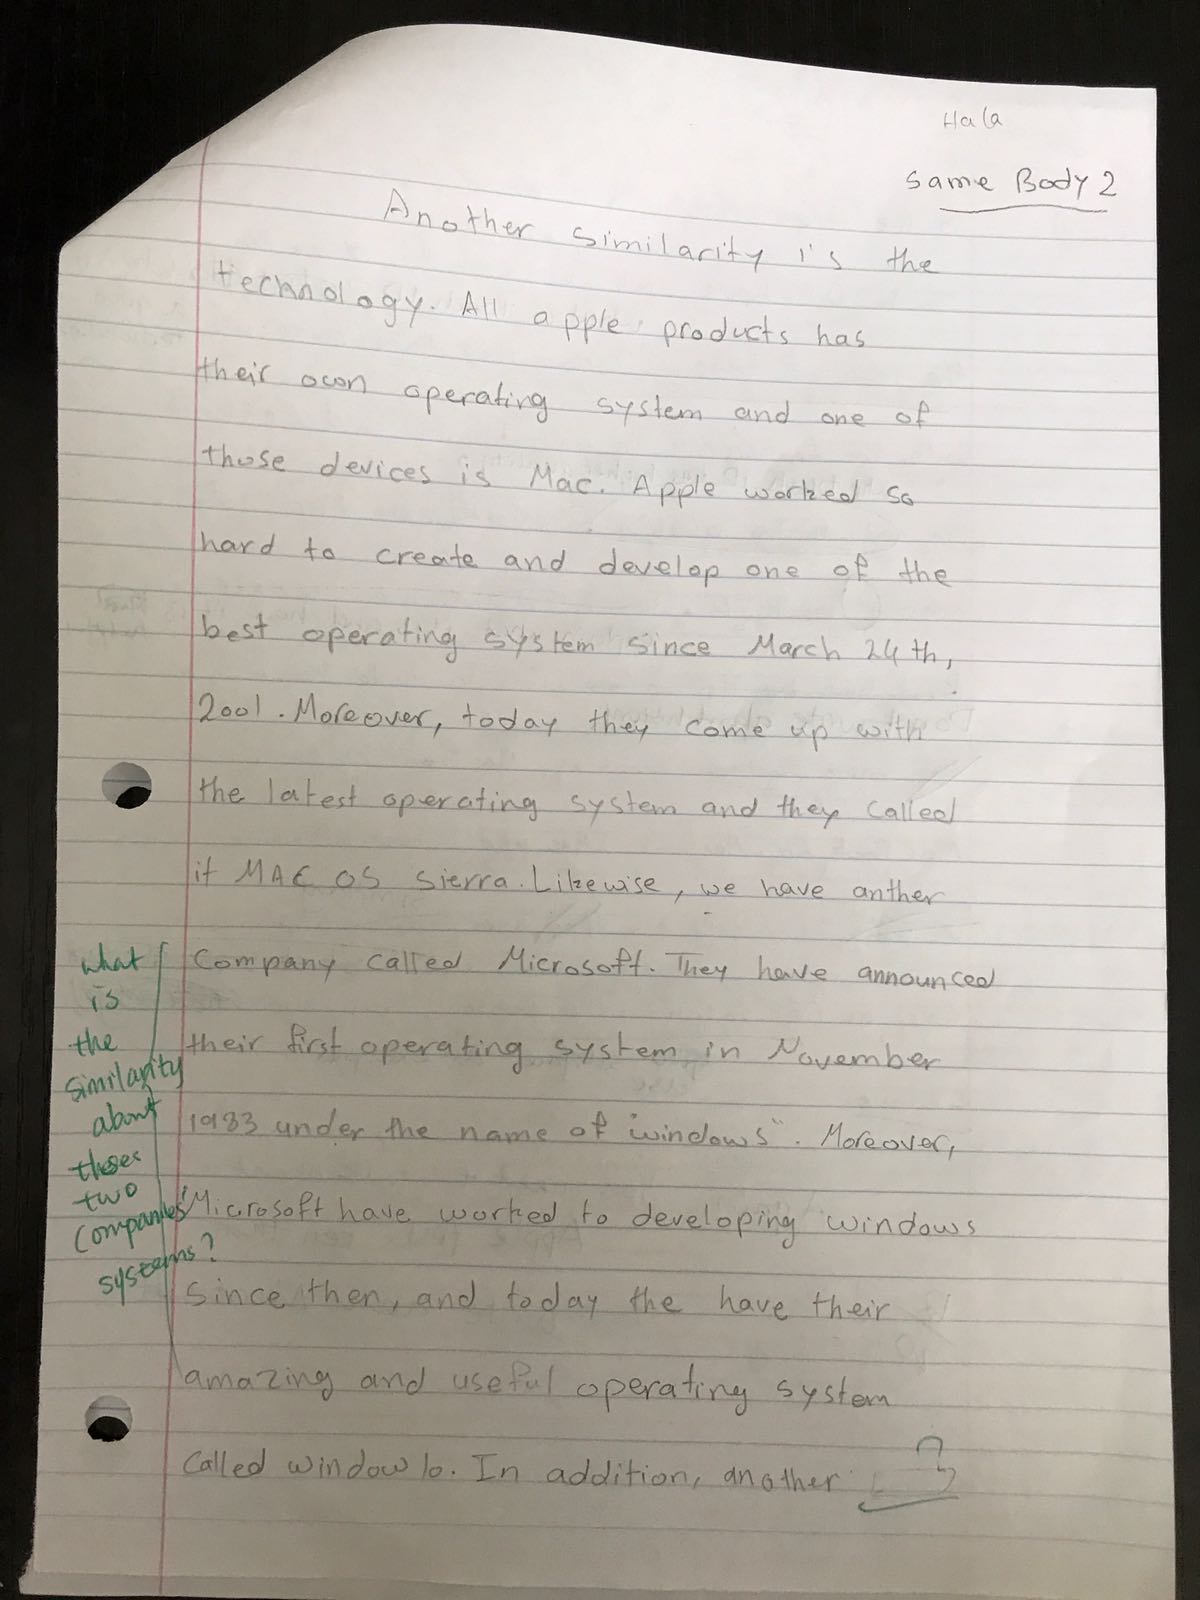 Hala
Same Body 2
Another similarity is the
technology. All apple products has
their own operating system and one of
those devices is Mac. Apple worked so
hard to create and develop one of the
best operating system since March 24th,
2001. Moreover, today they come up with
the latest operating system and they called
it MAC OS sierra. Likewise, we have anther
Company called Microsoft. They have announced
their first operating system in November
1983 under the name of "windows". Moreover,
Microsoft have worked to developing windows
since then, and today the have their
amazing and useful operating system
called window 10. In addition, another
?
what
is
the
similarity
about
theses
two
companies'
systems?